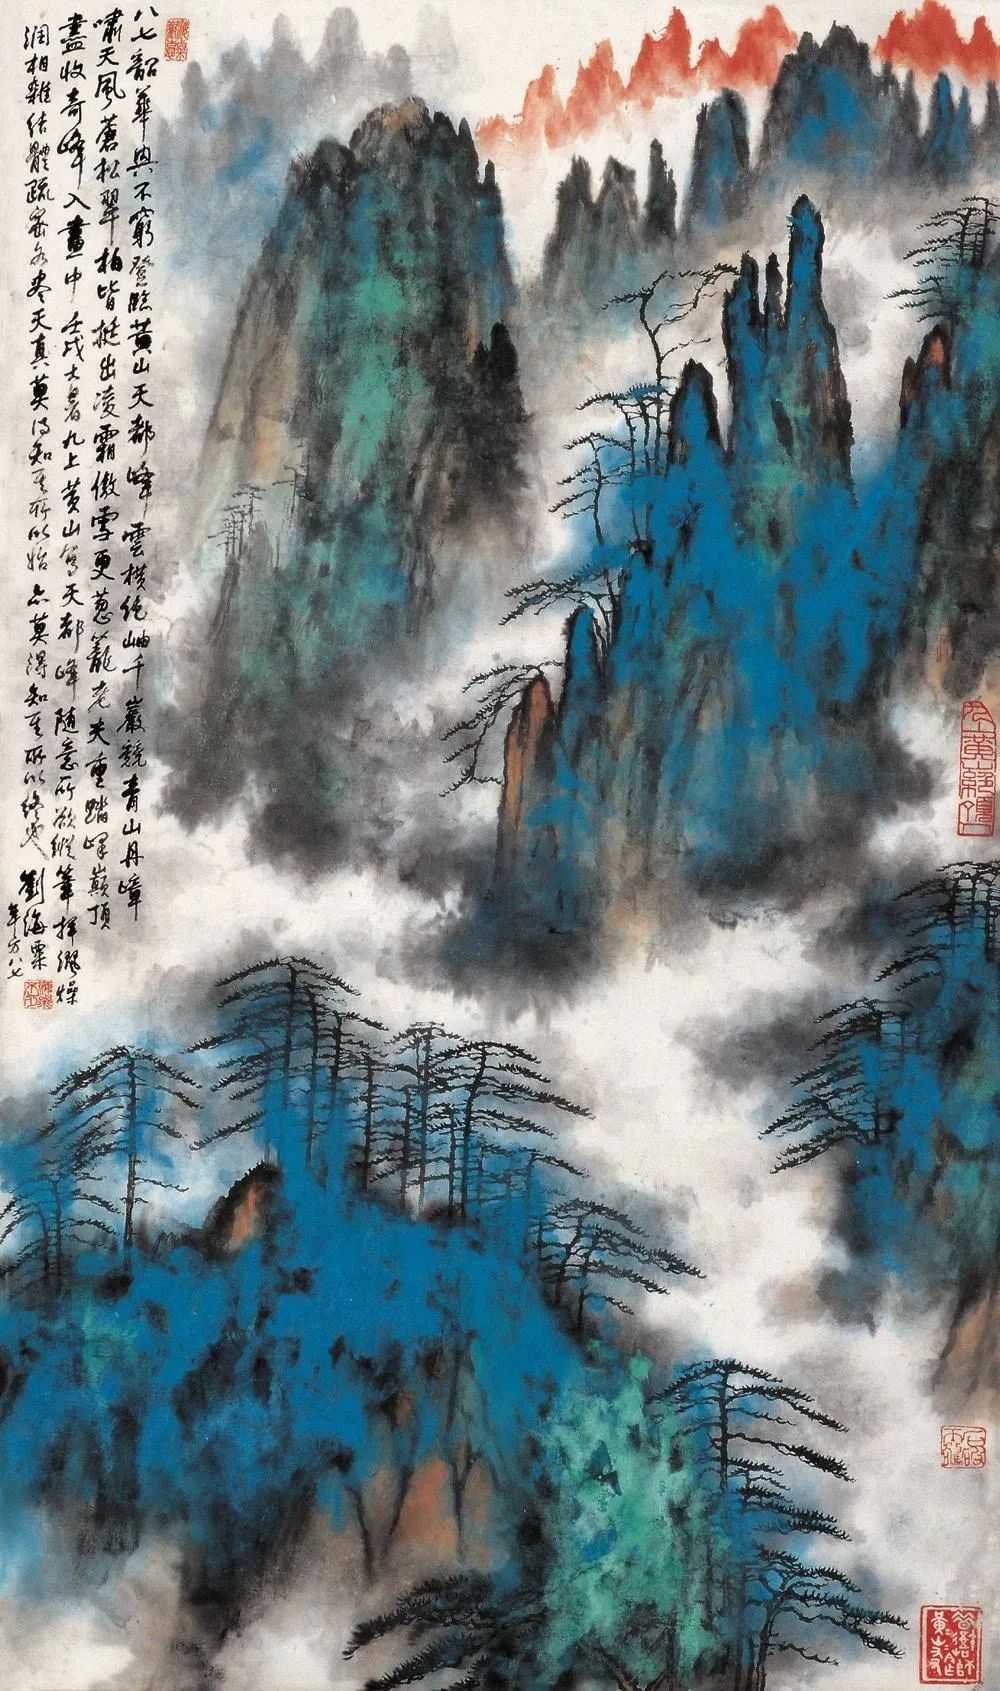 八七韶華興不窮登臨黃山天都峰雲橫絕岫千巖競青山丹嶂
嘯天風蒼松翠柏皆挺出凌霜傲雪更蔥蘢老夫重踏峰巔頂
盡收奇峰入畫中壬戌大暑九上黃山寫天都峰隨意所欲縱筆揮灑燥
潤相雜結體疏密各盡天真莫得知其所以始亦莫得知其所以終也劉海粟
年方八七
九上黃山絕頂人
黃山是我師